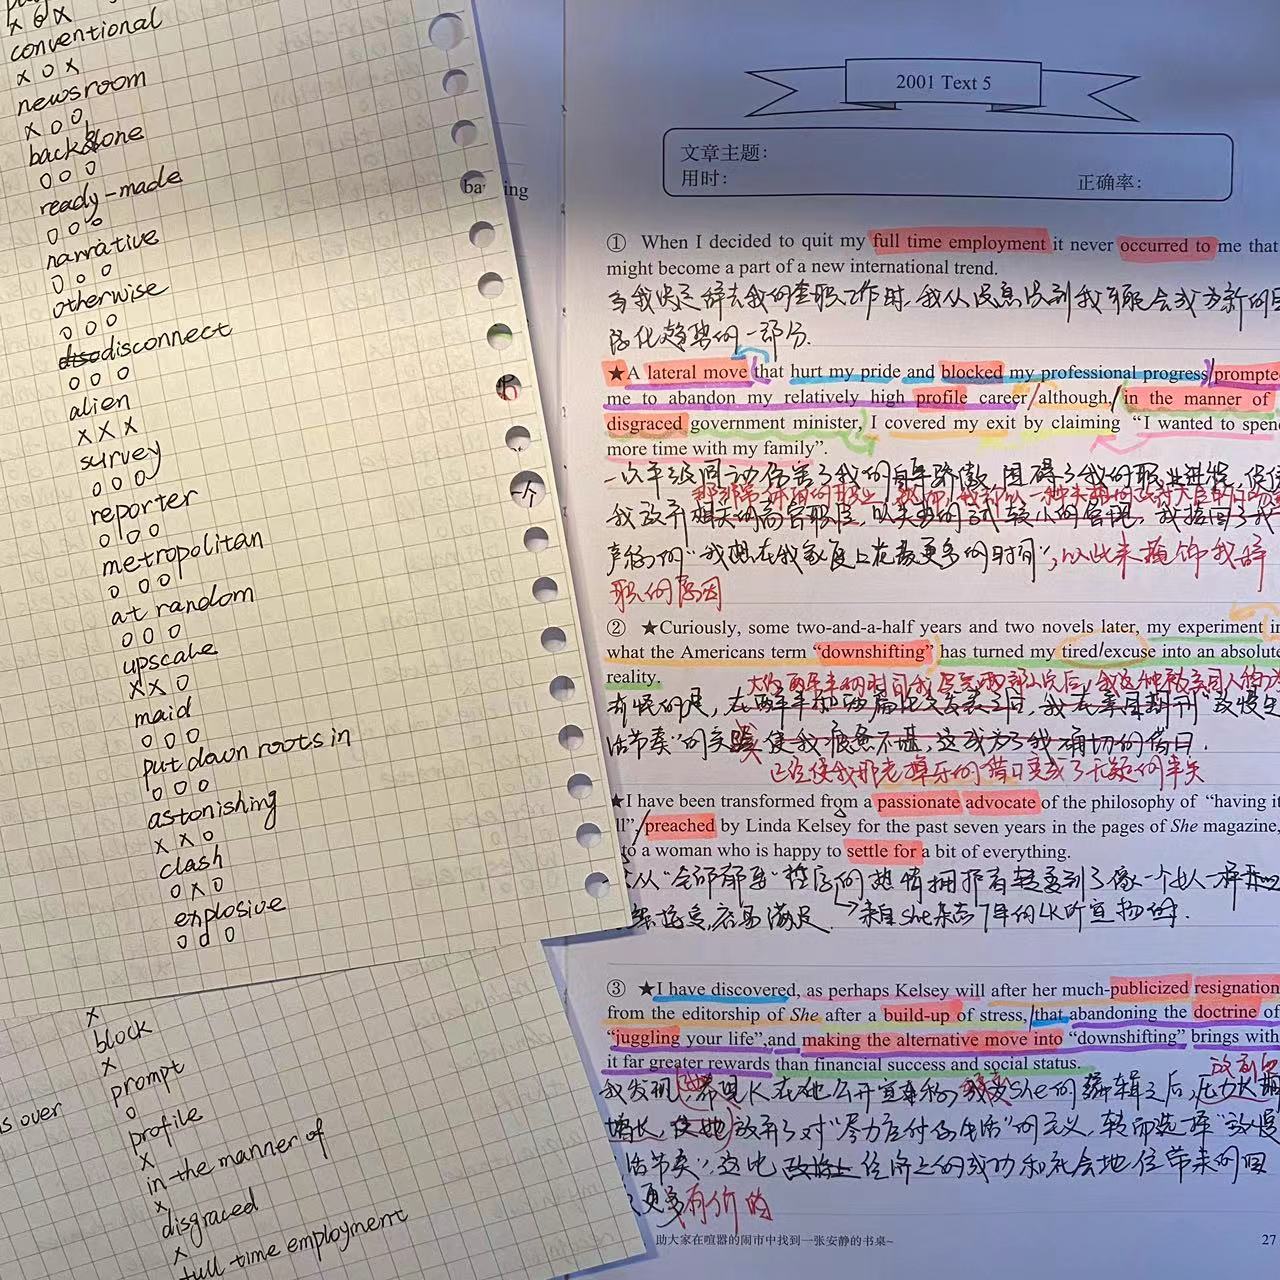 x o x
conventional
x o x
newsroom
x o o
backbone
o o o
ready-made
o o o
narrative
o o o
otherwise
o o o
disconnect
o o o
alien
x x x
survey
o o o
reporter
o o o
metropolitan
o o o
at random
o o o
upscale
x x o
maid
o o o
put down roots in
o o o
astonishing
x x o
clash
o x o
explosive
o o o
x
block
x
prompt
o
profile
x
in the manner of
x
disgraced
x
full-time employment
is over
一个
2001 Text 5
文章主题:
用时:
正确率:
① When I decided to quit my full time employment it never occurred to me that
might become a part of a new international trend.
当我决定辞去我的全职工作时,我从没意识到我可能会成为新的国
际化趋势的一部分.
★A lateral move that hurt my pride and blocked my professional progress prompted
me to abandon my relatively high profile career although, in the manner of
disgraced government minister, I covered my exit by claiming “I wanted to spend
more time with my family”.
一次平级调动伤害了我的自尊骄傲,阻碍了我的职业进程,促使
我放弃相关的高官职位,
声称的“我想在我家庭上花费更多的时间”,以此来掩饰我辞
职的原因
② ★Curiously, some two-and-a-half years and two novels later, my experiment in
what the Americans term “downshifting” has turned my tired excuse into an absolute
reality.
大约两年半的时间我写完两部小说后,我这种被美国人称为
活节奏”的实验使我疲惫不堪,这成为了我确切的借口.
已经使我那老掉牙的借口变成了无疑的事实
★I have been transformed from a passionate advocate of the philosophy of “having it
ll”, preached by Linda Kelsey for the past seven years in the pages of She magazine,
to a woman who is happy to settle for a bit of everything.
从“全部都要”哲学的热情拥护者转变到了像一个女人一样
容易满足.
来自She杂志7年的LK所宣扬的.
③ ★I have discovered, as perhaps Kelsey will after her much-publicized resignation
from the editorship of She after a build-up of stress, that abandoning the doctrine of
“juggling your life”,and making the alternative move into “downshifting” brings with
it far greater rewards than financial success and social status.
我发现,K在她公开宣称 She的编辑之后,压力
增长,使她放弃了对“尽力应付你生活”的定义,转而选择“放慢
活节奏”,这比经济上的成功和社会地位带来的回
更多有价的
助大家在喧嚣的闹市中找到一张安静的书桌~
27